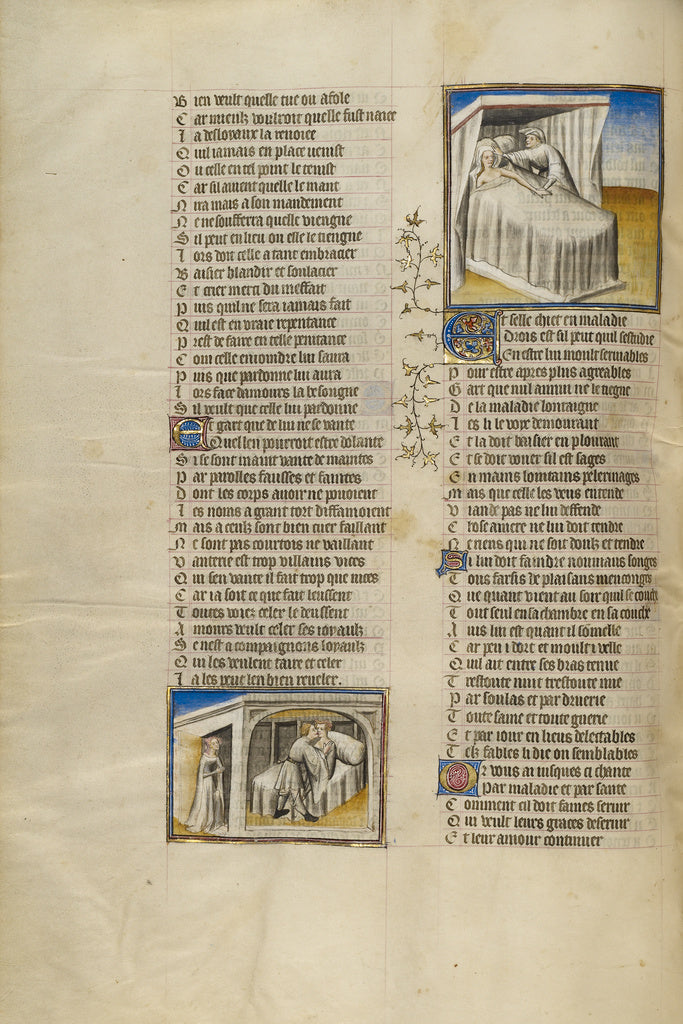 B ien veult quelle tue ou afole
C ar mieulx vouldroit quelle fust naiee
I a desloyaux la renoiee
Q uil iamais en place venist
O u celle en tel point le tenist
C ar sil auient quelle le mant
N ira mais a son mandement
N e ne souffrera quelle viengne
S il peut en lieu ou elle le tiengne
L ors doit celle a tant embracier
B aisier blandir et soulacier
E t crier merci du meffait
P uis quil ne sera iamais fait
Q uil est en vraie repentance
P rest de faire en celle penitance
C om celle enioindre lui saura
P uis que pardonne lui aura
L ors face damours la besongne
S il veult que celle lui pardonne
Et gart que de lui ne se vante
Quel len pourroit estre dolante
S i se sont maint vante de maintes
P ar parolles faulses et faintes
D ont les corps auoir ne pouoient
L es noms a grant tort diffamoient
M ais a ceulx sont bien cuer faillant
N e sont pas courtois ne vaillant
V anterie est trop villains vices
Q ui sen vante il fait trop que nices
C ar ia soit ce que fait leussent
T outes voiez celer le deussent
A mours veult celer ses ioyaulx
S e nest a compaignons loyaulx
Q ui les veulent taire et celer
L a les peut len bien reueler.
Et selle chiet en maladie
Drois est sil peut quil sestudie
En estre lui moult seruiables
P our estre apres plus agreables
G art que nul annui ne le tiegne
D e la maladie lontaigne
L es li le voye demourant
E t la doit baisier en plourant
E t se doit vouer sil est sages
E n mains lointains pelerinages
M ais que celle les veus entende
V iande pas ne lui deffende
C hose amere ne lui doit tendre
N e riens qui ne soit doulx et tendre
Si lui doit faindre nouuiaus songes
T ous farsis de plaisans mencongez
Q ue quant vient au soir quil se couche
T out seul en sa chambre en sa couche
A uis lui est quant il someille
C ar peu i dort et moult i velle
Q uil ait entre ses bras tenue
T restoute nuit trestoute nue
P ar soulas et par druerie
T oute saine et toute guerie
E t par iour en lieus delectables
T elz fables li die ou semblables
Or vous ai iusques ci chante
Par maladie et par sante
C omment cil doit fames seruir
Q ui veult leurs graces deseruir
E t leur amour continuer